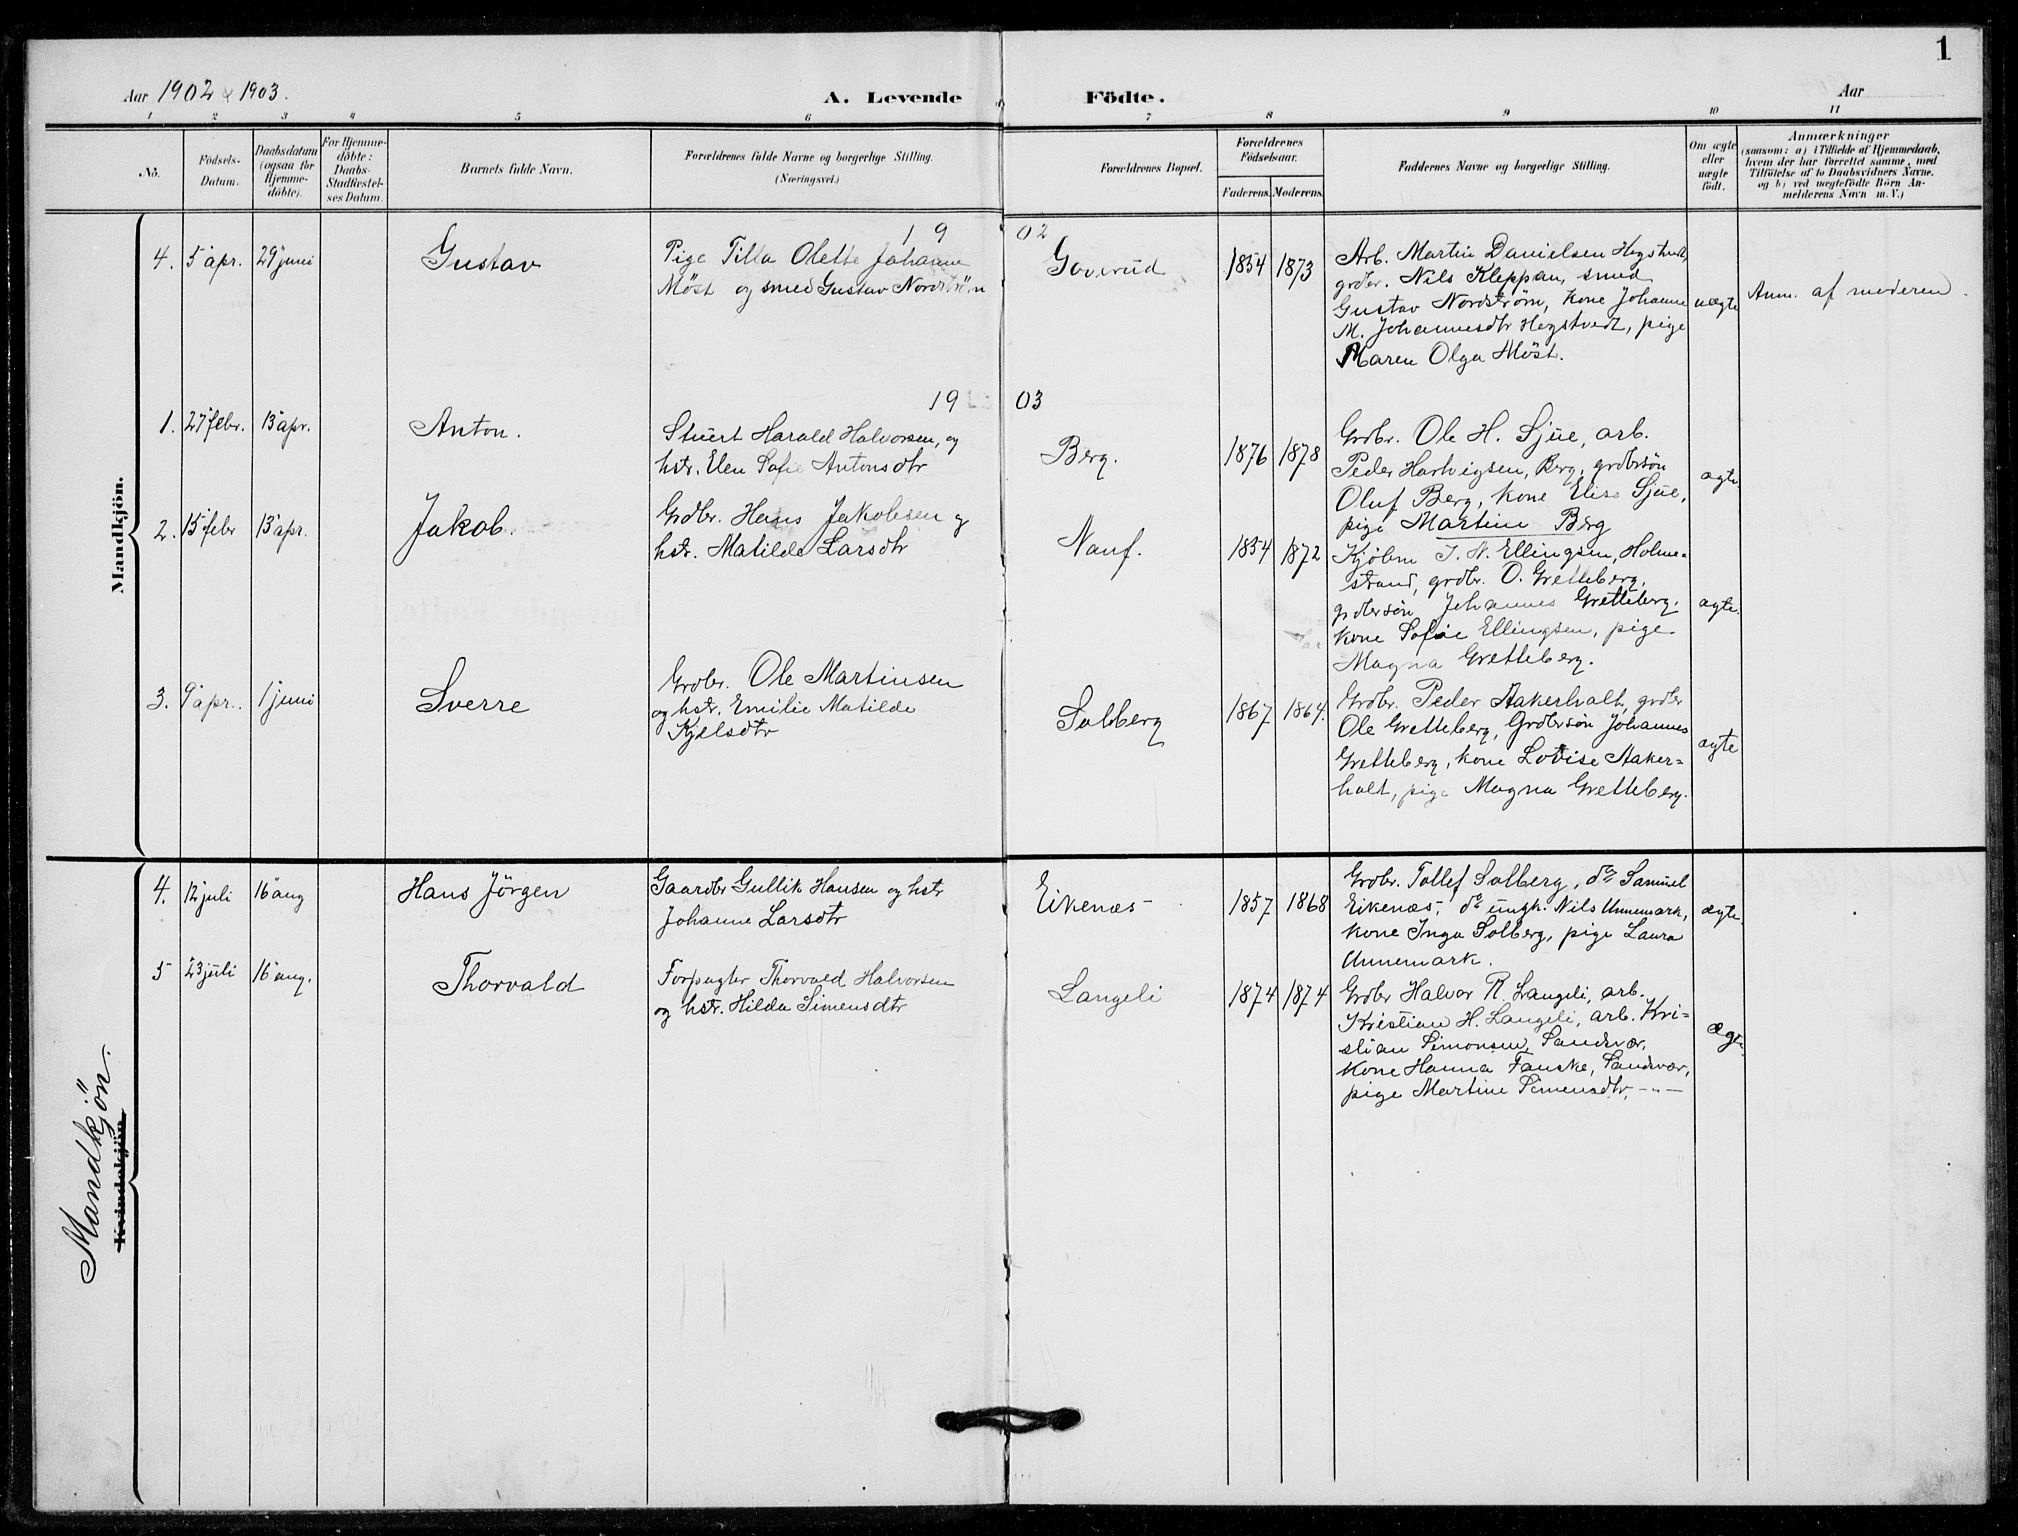 1
Aar 1902 & 1903.
A. Levende Födte.
Aar
1 2 3 4 5 6 7 8 9 10 11
No.
Födsels-Datum.
Daabsdatum (ogsaa for Hjemmedöbte).
For Hjemmedöbte: Daabs-Stadfæstelses Datum.
Barnets fulde Navn.
Forældrenes fulde Navne og borgerlige Stilling.
(Næringsvei.)
Forældrenes Bopæl.
Forældrenes Födselsaar.
Faderens. Moderens.
Faddernes Navne og borgerlige Stilling.
Om ægte eller uægte födt.
Anmærkninger
(saasom: a) i Tilfælde af Hjemmedaab,
hvem der har forrettet samme, med
Tilföielse af to Daabsvidners Navne.
og b) ved uægtefödte Börn An-
melderens Navn m. V.)
Mandkjön.
1902
4. 5 apr. 29 juni
Gustav
Pige Tilla Olette Johanne
Møst og smed Gustav Nordstrøm
Goverud
1854 1873
Arb. Martin Danielsen Hegstvedt,
grdbr. Nils Kleppan, smed
Gustav Nordstrøm, kone Johanne
M. Johannesdtr Hegstvedt, pige
Maren Olga Møst.
uægte
Anm. af moderen.
1903
1. 27 febr. 13 apr.
Anton.
Stuert Harald Halvorsen, og
hstr. Elen Sofie Antonsdtr
Berg.
1876 1878
Grdbr. Ole H. Sjue, arb.
Peder Hartvigsen, Berg, grdbrsøn
Oluf Berg, kone Elise Sjue,
pige Martine Berg
ægte
2. 15 febr 13 apr.
Jakob.
Grdbr. Hans Jakobsen og
hstr. Matilde Larsdtr
Nauf.
1854 1872
Kjøbm J. N. Ellingsen, Holme=
strand, grdbr. O. Gretteberg,
grdbrsøn Johannes Gretteberg.
kone Sofie Ellingsen, pige
Magna Gretteberg.
ægte.
3. 9 apr. 1 juni
Sverre
Grdbr. Ole Martinsen
og hstr. Emilie Matilde
Kjelsdtr
Solberg
1867 1864.
Grdbr. Peder Aakerholt, grdbr
Ole Gretteberg, Grdbrsøn Johannes
Gretteberg, kone Lovise Aaker=
holt, pige Magna Gretteberg.
ægte
Mandkjön.
Kvindekjön.
4. 12 juli 16 aug
Hans Jörgen
Gaardbr Gullik Hansen og hstr
Johanne Larsdtr
Eikenæs
1857 1868
Grdbr. Tollef Solberg, do Samuel
Eikenæs, do ungk. Nils Unnemark,
kone Inga Solberg, pige Laura
Unnemark.
ægte
5 23 juli 16 aug.
Thorvald
Forpagter Thorvald Halvorsen
og hstr. Hilda Simensdtr
Langeli
1874 1874
Grdbr Halvor R. Langeli, arb.
Kristian H. Langeli, arb. Kri=
stian Simonsen, Sandsvær,
kone Hanna Fauske, Sandsvær,
pige Martine Simensdtr, -"-
ægte